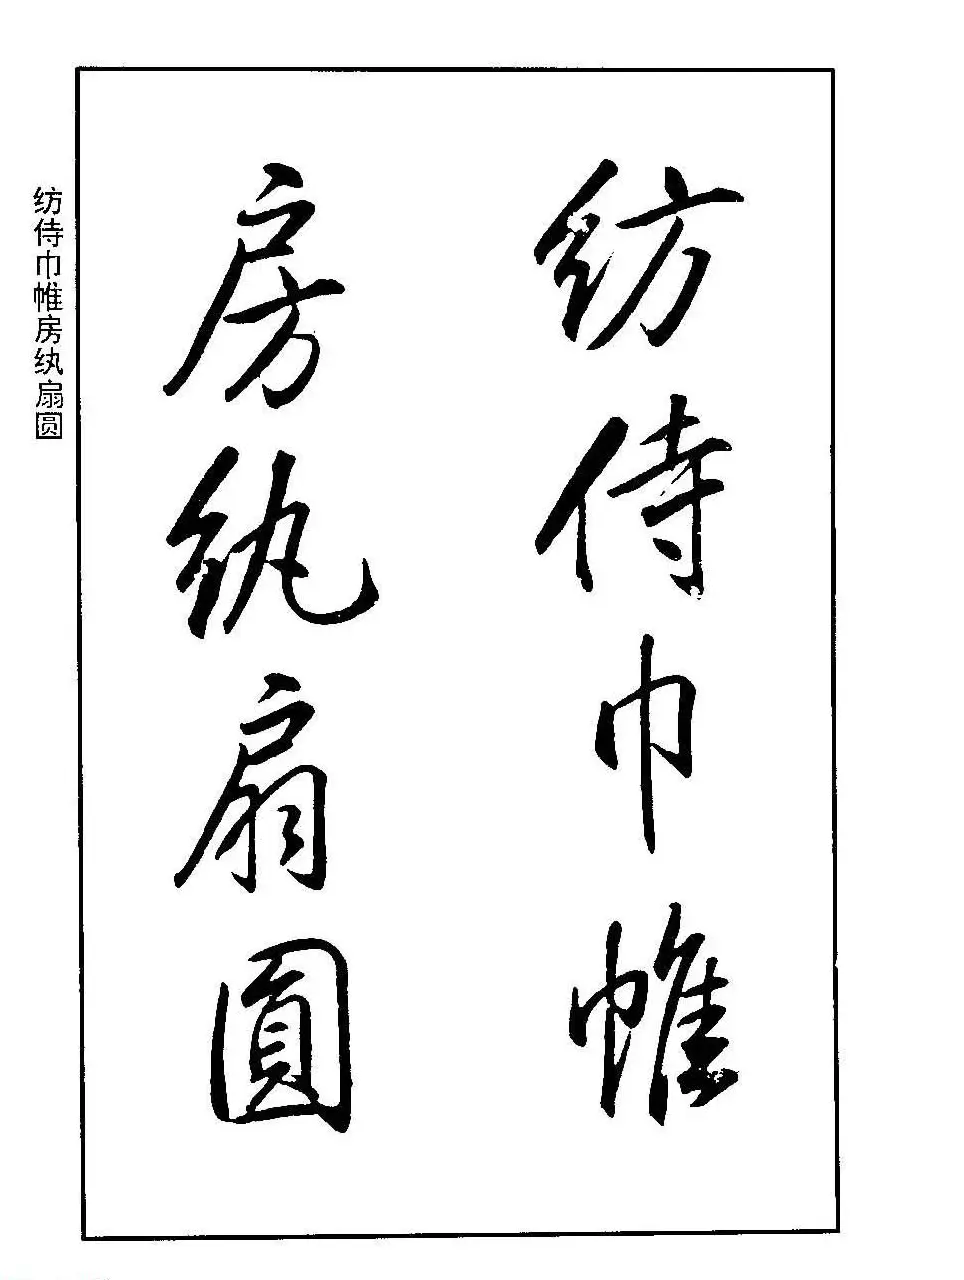 紡侍巾帷
房紈扇圓
纺侍巾帷房纨扇圆